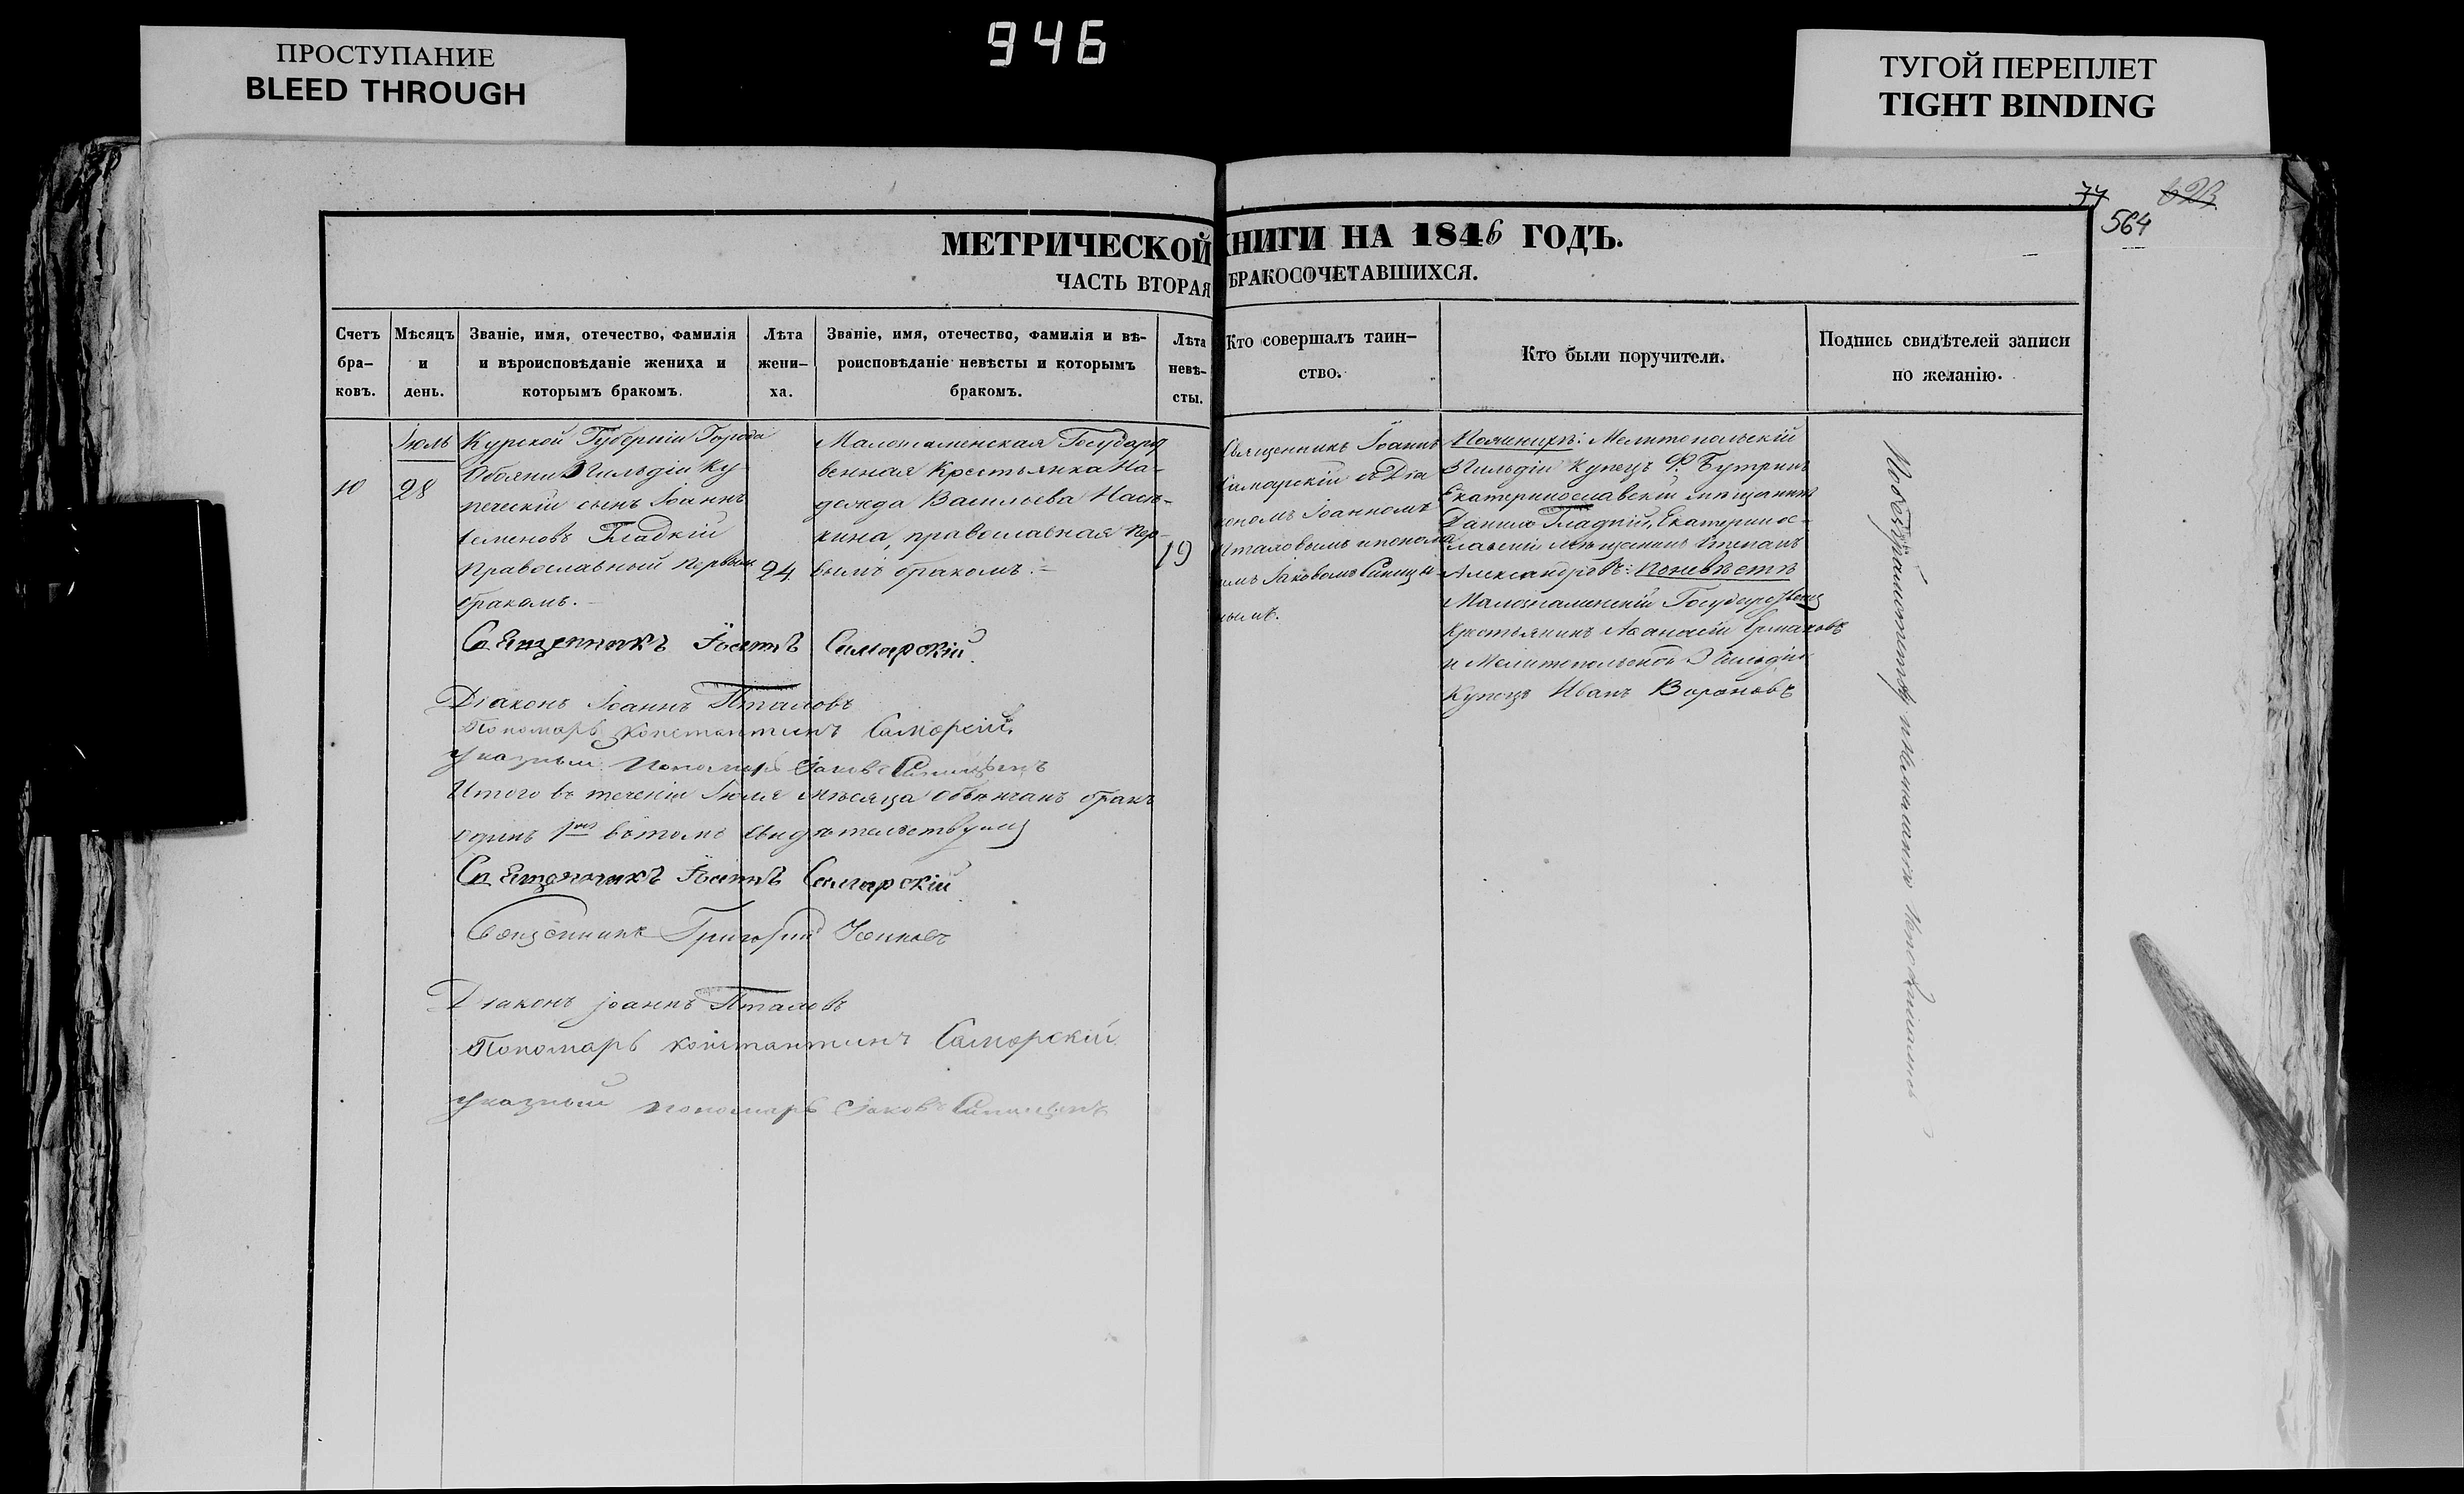 ПРОСТУПАНИЕ
BLEED THROUGH
946
ТУГОЙ ПЕРЕПЛЕТ
TIGHT BINDING
77
564
МЕТРИЧЕСКОЙ КНИГИ НА 1846 ГОДЪ.
ЧАСТЬ ВТОРАЯ БРАКОСОЧЕТАВШИХСЯ.
Счетъ бра-ковъ.
Мѣсяцъ и день.
Званіе, имя, отечество, фамилія
и вѣроисповѣданіе жениха и
которымъ бракомъ.
Лѣта жени-ха.
Званіе, имя, отечество, фамилія и вѣ-
роисповѣданіе невѣсты и которымъ
бракомъ.
Лѣта невѣ-сты.
Кто совершалъ таин-
ство.
Кто были поручители.
Подпись свидѣтелей записи
по желанію.
10
Іюль
28
Курской Губерніи Города
Обояни 3 Гильдіи Ку
печескій сынъ Іоаннъ
Семеновъ Гладкій
Православный первым
бракомъ.
24
Малознаменская Государ
венная Крестьянка На-
дежда Васильева
кина, православная пер-
вымъ бракомъ.
19
Священникъ Іоаннъ
Самарскій съ Діа
кономъ Іоанномъ
Пталовымъ и понома
емъ Іаковомъ Синицы
нымъ.
По женихѣ: Мелитопольскій
3 Гильдіи Купецъ Ф. Бутринъ
Екатеринославскій мещанинъ
Данило Гладкій, Екатеринос-
лавскій мещанинъ Степанъ
Александровъ: По невѣстѣ
Малознаменскій Государствен
Крестьянинъ Аѳанасій Ермаковъ
и Мелитопольской 3 Гильдіи
Купецъ Иванъ Вороновъ
Священникъ Іоаннъ Самарскій
Діаконъ Іоаннъ Пталовъ
Пономарь Константинъ Самарскій
Указный Пономарь Іаковъ Синицынъ
Итого въ теченіи Іюля мѣсяца обвѣнчанъ бракъ
одинъ въ томъ свидѣтельствуемъ
Священникъ Іоаннъ Самарскій
Священникъ Григорій
Діаконъ Іоаннъ Пталовъ
Пономарь Константинъ Самарскій
Указный пономарь Іаковъ Синицынъ